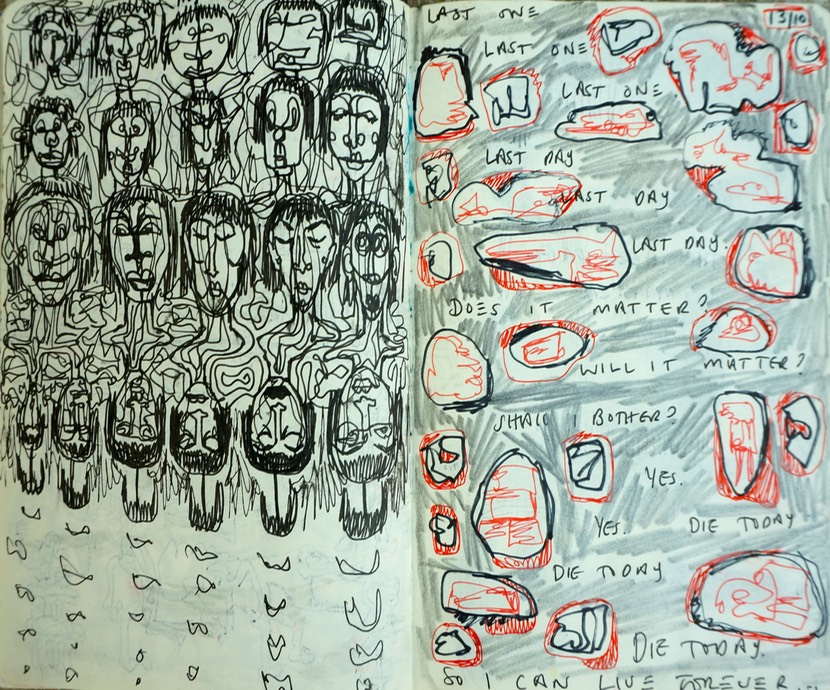 LAST ONE
13/10
LAST ONE
LAST ONE
LAST DAY
LAST DAY
LAST DAY.
DOES IT MATTER?
WILL IT MATTER?
SHALL I BOTHER?
YES.
YES. DIE TODAY
DIE TODAY
DIE TODAY.
SO I CAN LIVE FOREVER.